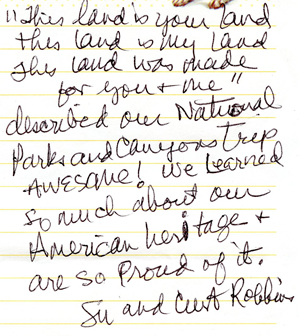 "This land is your land
this land is my land
This land was made
for you + me"
described our National
Parks and Canyons trip
AWESOME! We Learned
so much about our
American heritage +
are so Proud of it.
Su and Curt Robbins